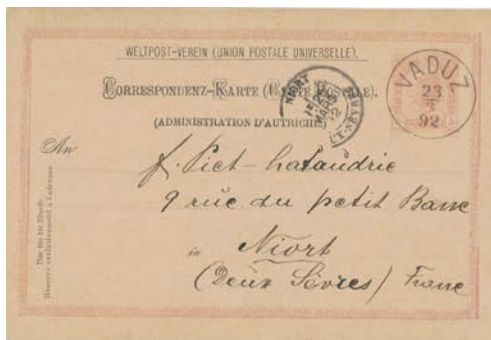 WELTPOST-VEREIN (UNION POSTALE UNIVERSELLE).
CORRESPONDENZ-KARTE (CARTE POSTALE).
(ADMINISTRATION D'AUTRICHE)
VADUZ
23
3
92
NIORT
MARS
92
An
f. Piet-Lataudrie
9 rue du petit Banc
in Niort
(Deux Sèvres) France
Réservé exclusivement à l'adresse